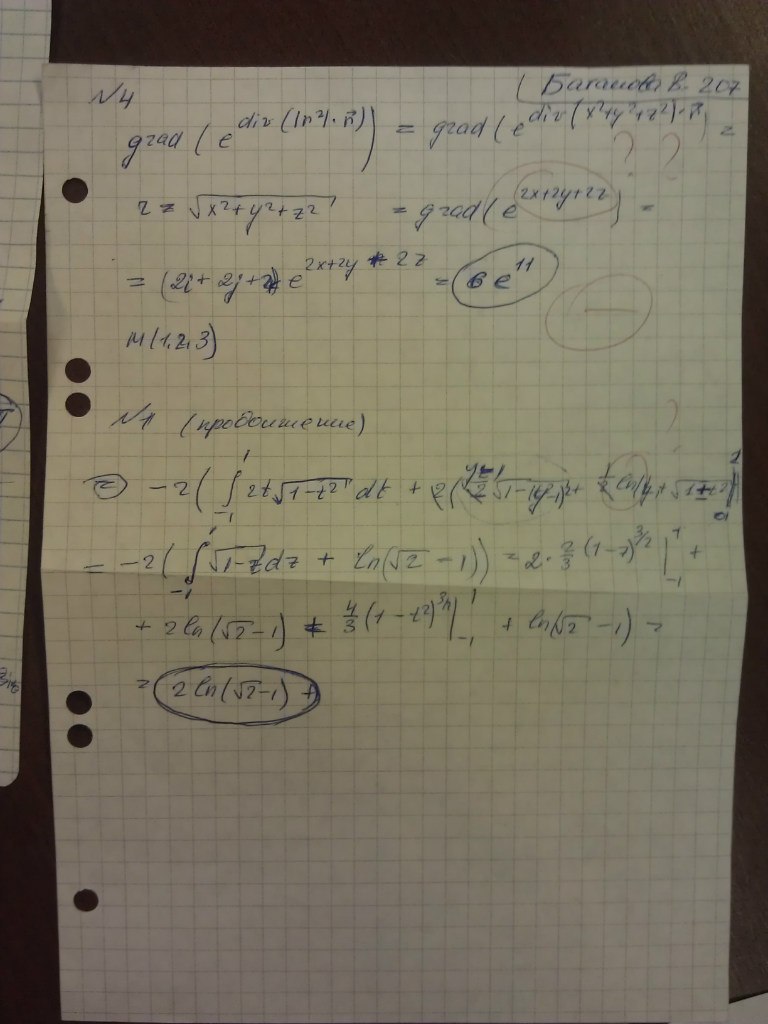 Баганова В. 207
№4
grad ( e^{div (|r²|·r⃗)} ) = grad ( e^{div (x²+y²+z²)·r⃗} ) =
? ?
r = √x²+y²+z² = grad ( e^{2x+2y+2z} ) =
= (2i + 2j + 2k) e^{2x+2y+2z} = 6 e^{11}
—
M (1,2,3)
№1 (продолжение)
?
= -2 ( ∫_{-1}^{1} 2t √1-t² dt +
= -2 ( ∫_{-1}^{1} √1-z dz + ln(√2 -1)) = 2·2/3 (1-z)^{3/2} |_{-1}^{1} +
+ 2 ln(√2-1) + 4/3 (1-t²)^{3/2} |_{-1}^{1} + ln(√2 -1) =
= 2 ln(√2-1) +